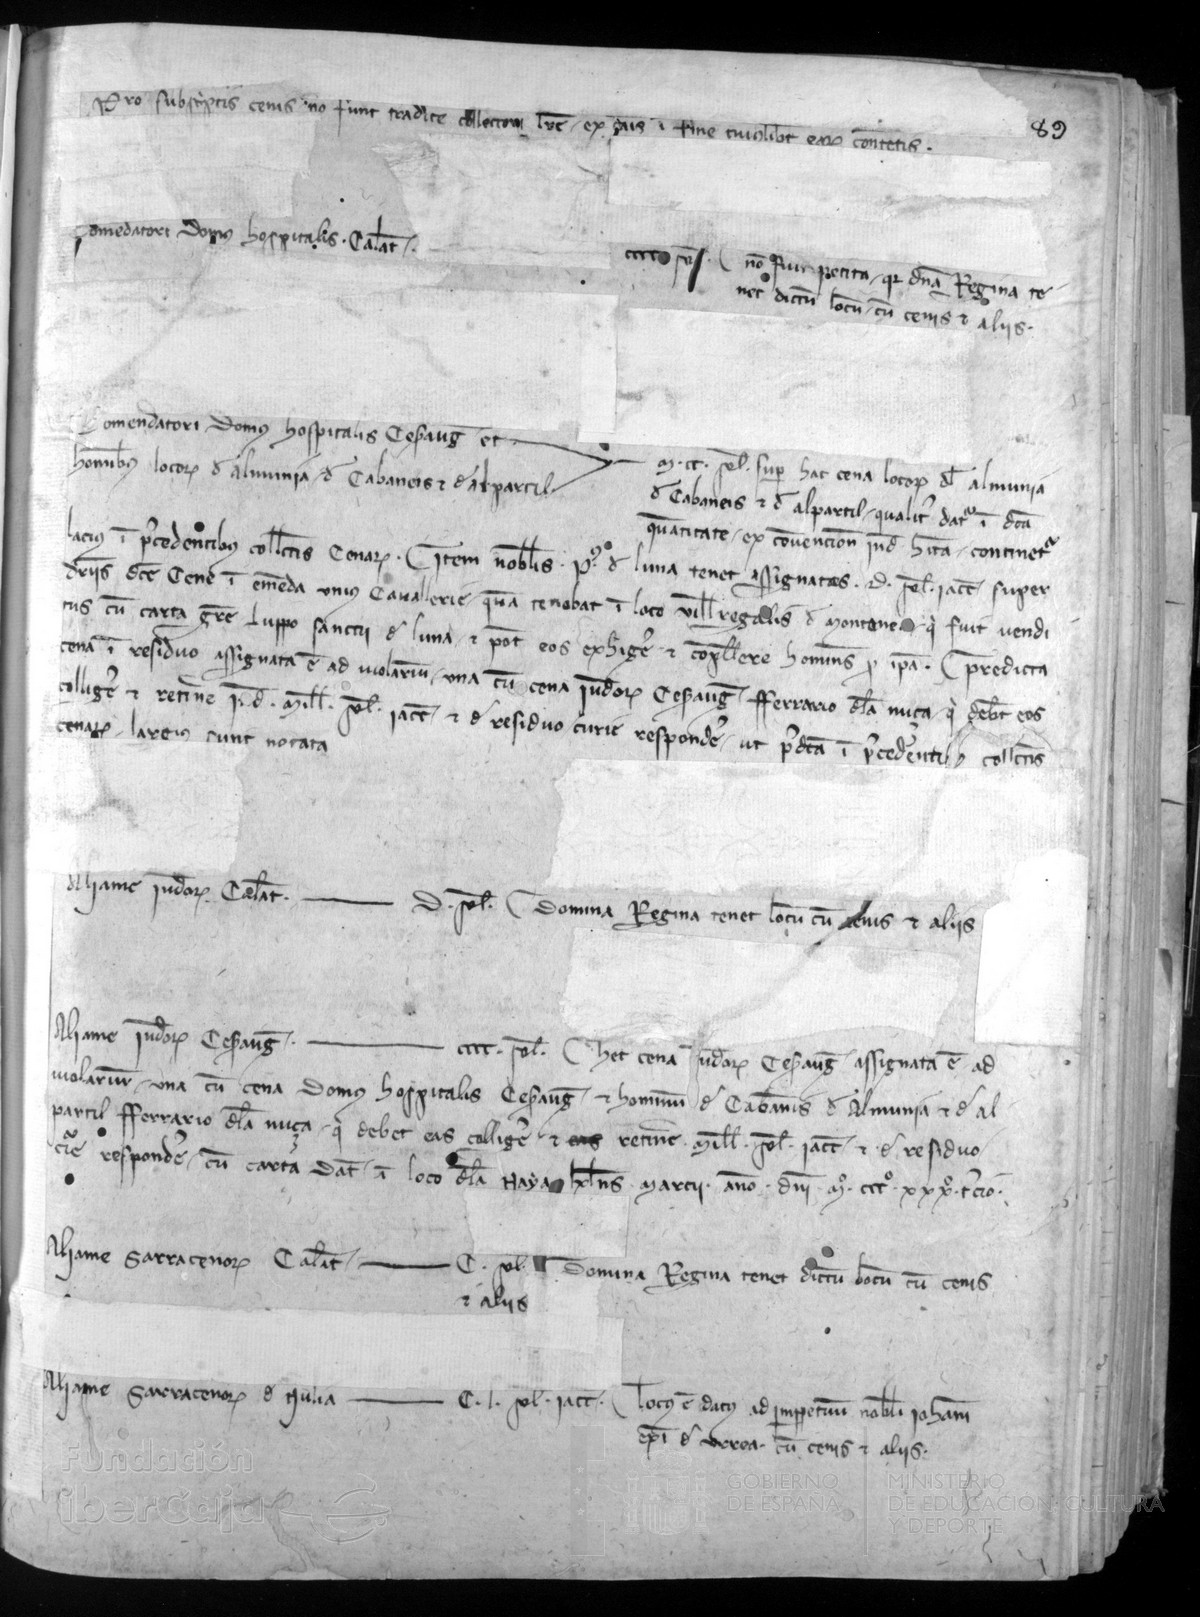 89
Pro subscriptis cenis no fũnt tradite collectori lrẽ ex cãis ĩ fine cuiuslibet earũ contentis.
Comẽdatori Domus hospitalis Calat.
cccc sol. no fuit petita qr dña Regina te
net dictũ locũ cũ cenis et aliis.
Comendatori Domus hospitalis Cesaug et
hominibus locor d almunia d Cabaneis et d alpartil
M. cc. sol. sup hac cena locor dl almunia
d Cabaneis et d alpartil qualit dat ĩ dcã
quãtitate ex cõvencion ĩnd hita continet
lacius ĩ precedentibus collectis Cenar. Item nobilis P. d luna tenet assignatos D. sol. iacc super
driis dce Cene ĩ emẽda unius Cavallerie quã tenebat ĩ loco villregalis d montane q fuit vendi
tus cũ carta gre Luppo sancii d luna et pot eos exhiger et cõpellere homines p ipa. predicta
cena ĩ residuo assignata ẽ ad violariũ una cũ cena iudeor Cesaug fferrario dla nuça q debet eos
colliger et retine mill sol. iacc et d residuo curie responder ut predcã ĩ precedentibus collectis
cenar lacius sunt notata
Aliame iudeor Calat. D. sol. Domina Regina tenet locũ cũ cenis et aliis
Aliame iudeor Cesaug. cccc. sol. hec cena iudeor Cesaug assignata ẽ ad
violariũ una cũ cena Domus hospitalis Cesaug et hominũ d Cabanis d Almunia et d Al
partil fferrario dla nuça q debet eas colliger et retine mill sol. iacc et d residuo
cie responder cũ carta Dat ĩ loco dla Naya klns marcii. ano dni M ccc xxx tercio.
Aliame Sarracenor Calat C. sol. Domina Regina tenet dictũ locũ cũ cenis
et aliis
Aliame Sarracenor d C. l. sol. iacc. Locus ẽ datus ad imppetuũ nobili iohani
d urrea. cũ cenis et aliis.
Fundación
iberCaja
GOBIERNO
DE ESPAÑA
MINISTERIO
DE EDUCACIÓN, CULTURA
Y DEPORTE